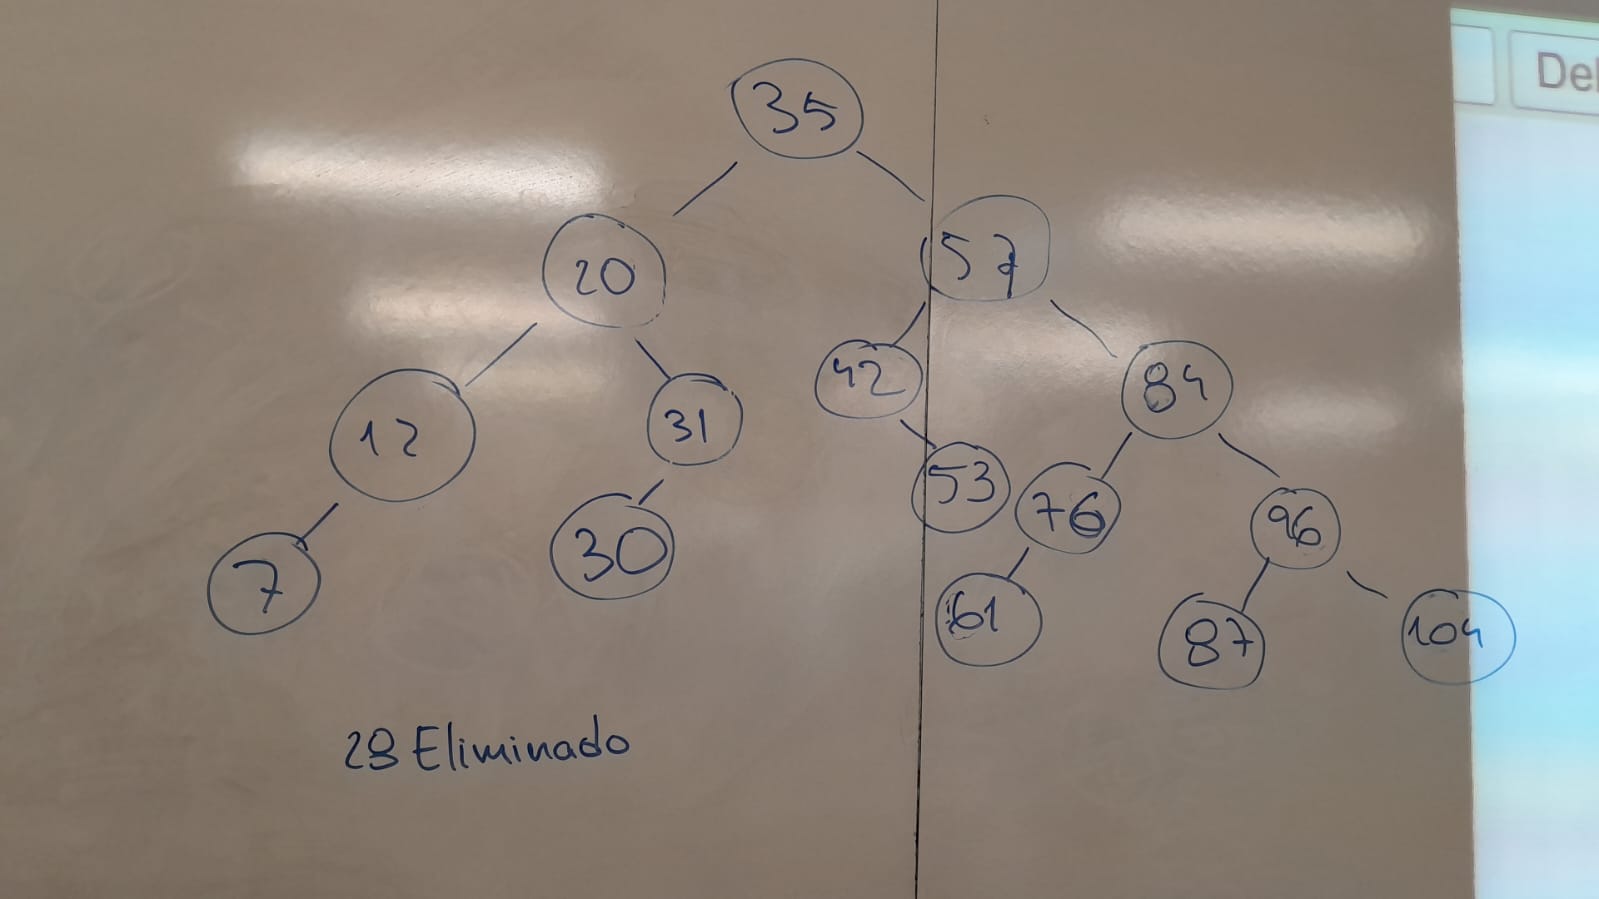 35
20 57
12 31 42 84
7 30 53 76 96
61 87 104
28 Eliminado
Del